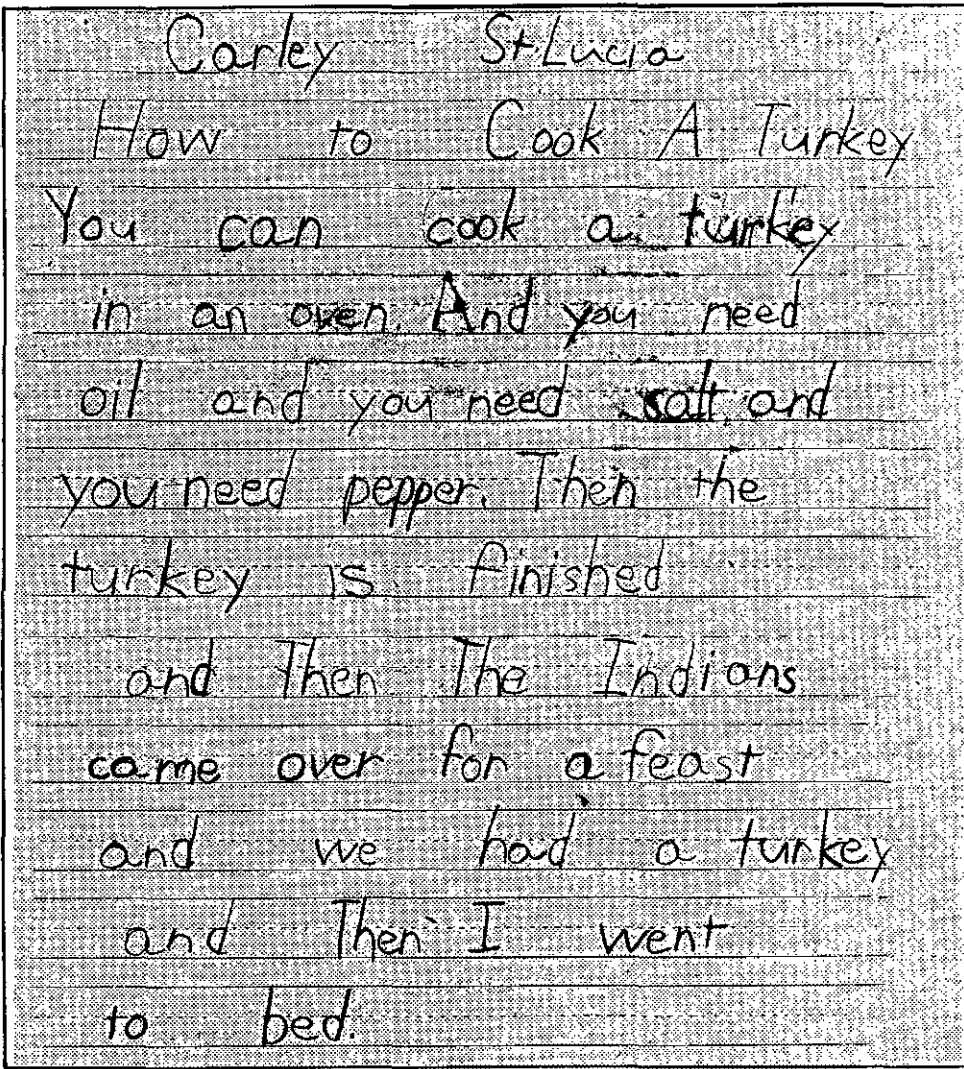 Carley St. Lucia
How to Cook A Turkey
You can cook a turkey
in an oven. And you need
oil and you need salt and
you need pepper. Then the
turkey is finished
and Then The Indians
came over for a feast
and we had a turkey
and Then I went
to bed.